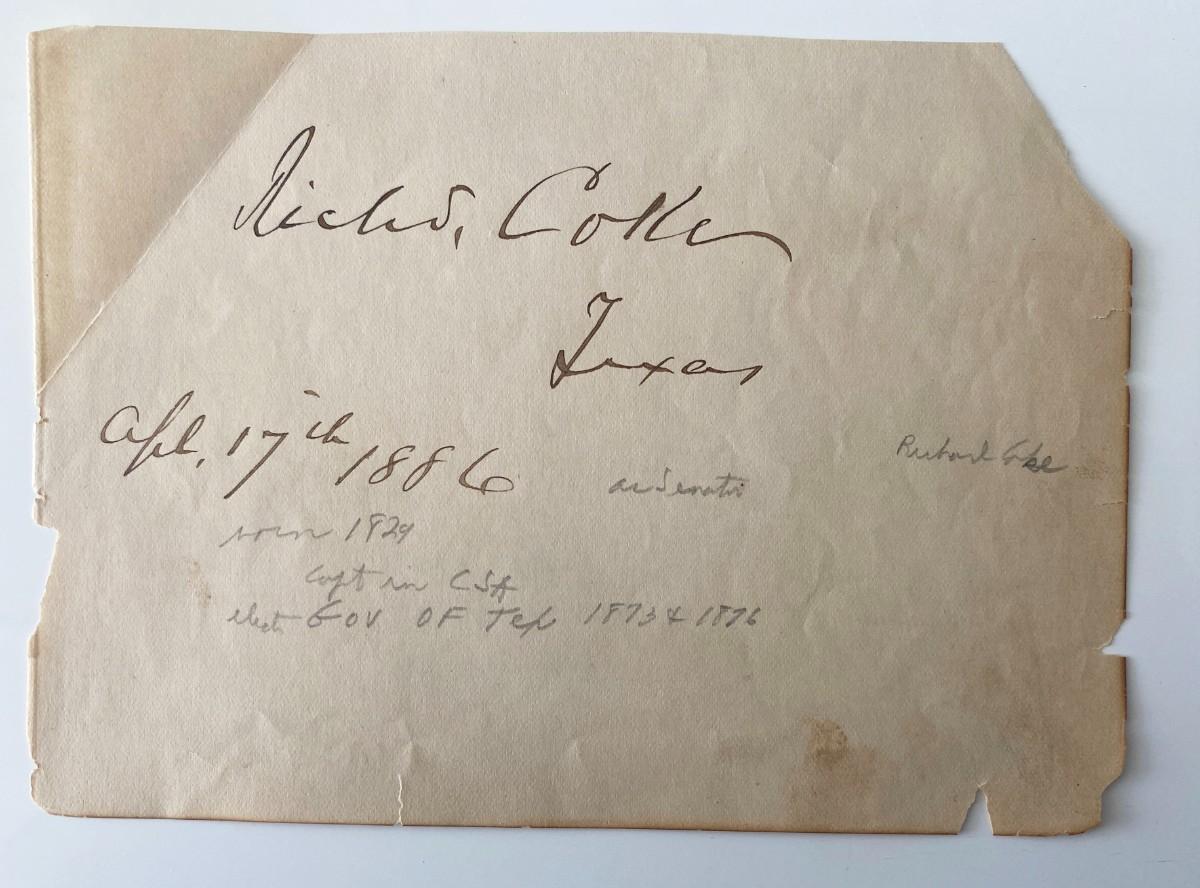 Richd, Coke
Texas
Apl, 17th 1886
as Senator
Richard Coke
born 1829
Capt in CSA
elect Gov OF Tex 1873 & 1876